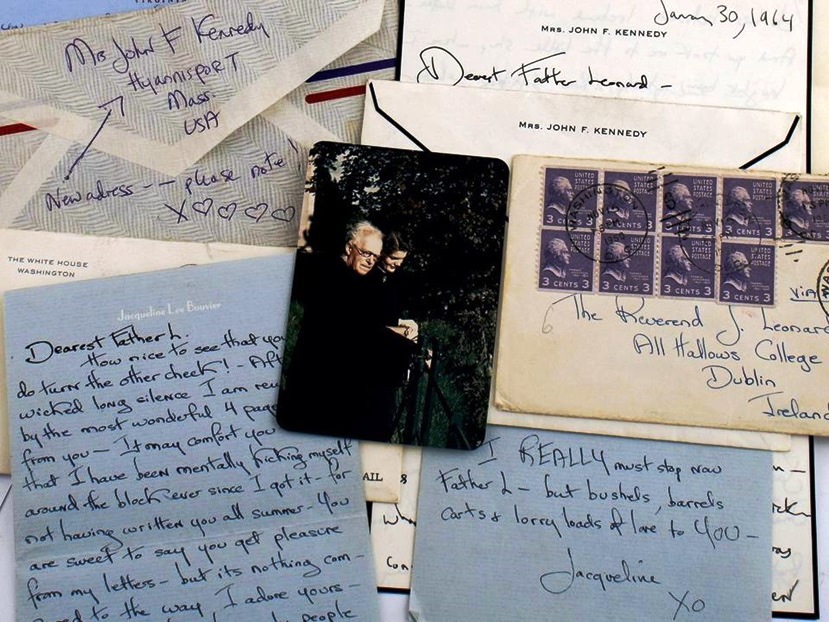 VIRGINIA
Mrs John F Kennedy
HyannisporT
Mass.
USA
New adress -- please note!
X♡♡♡♡
January 30, 1964
MRS. JOHN F. KENNEDY
Dearest Father Leonard —
MRS. JOHN F. KENNEDY
UNITED STATES POSTAGE
3 CENTS 3
WASHINGTON
VIA
The Reverend J. Leonard
All Hallows College
Dublin
Ireland
THE WHITE HOUSE
WASHINGTON
Jacqueline Lee Bouvier
Dearest Father L.
How nice to see that you
do turn the other cheek! - After
wicked long silence I am
by the most wonderful 4 page
from you — It may comfort you
that I have been mentally kicking myself
around the block ever since I got it - for
not having written you all summer - You
are sweet to say you get pleasure
from my letters - but its nothing com-
to the way I adore yours -
people
AIL
I REALLY must stop now
Father L - but bushels, barrels
carts & lorry loads of love to YOU -
Jacqueline
XO